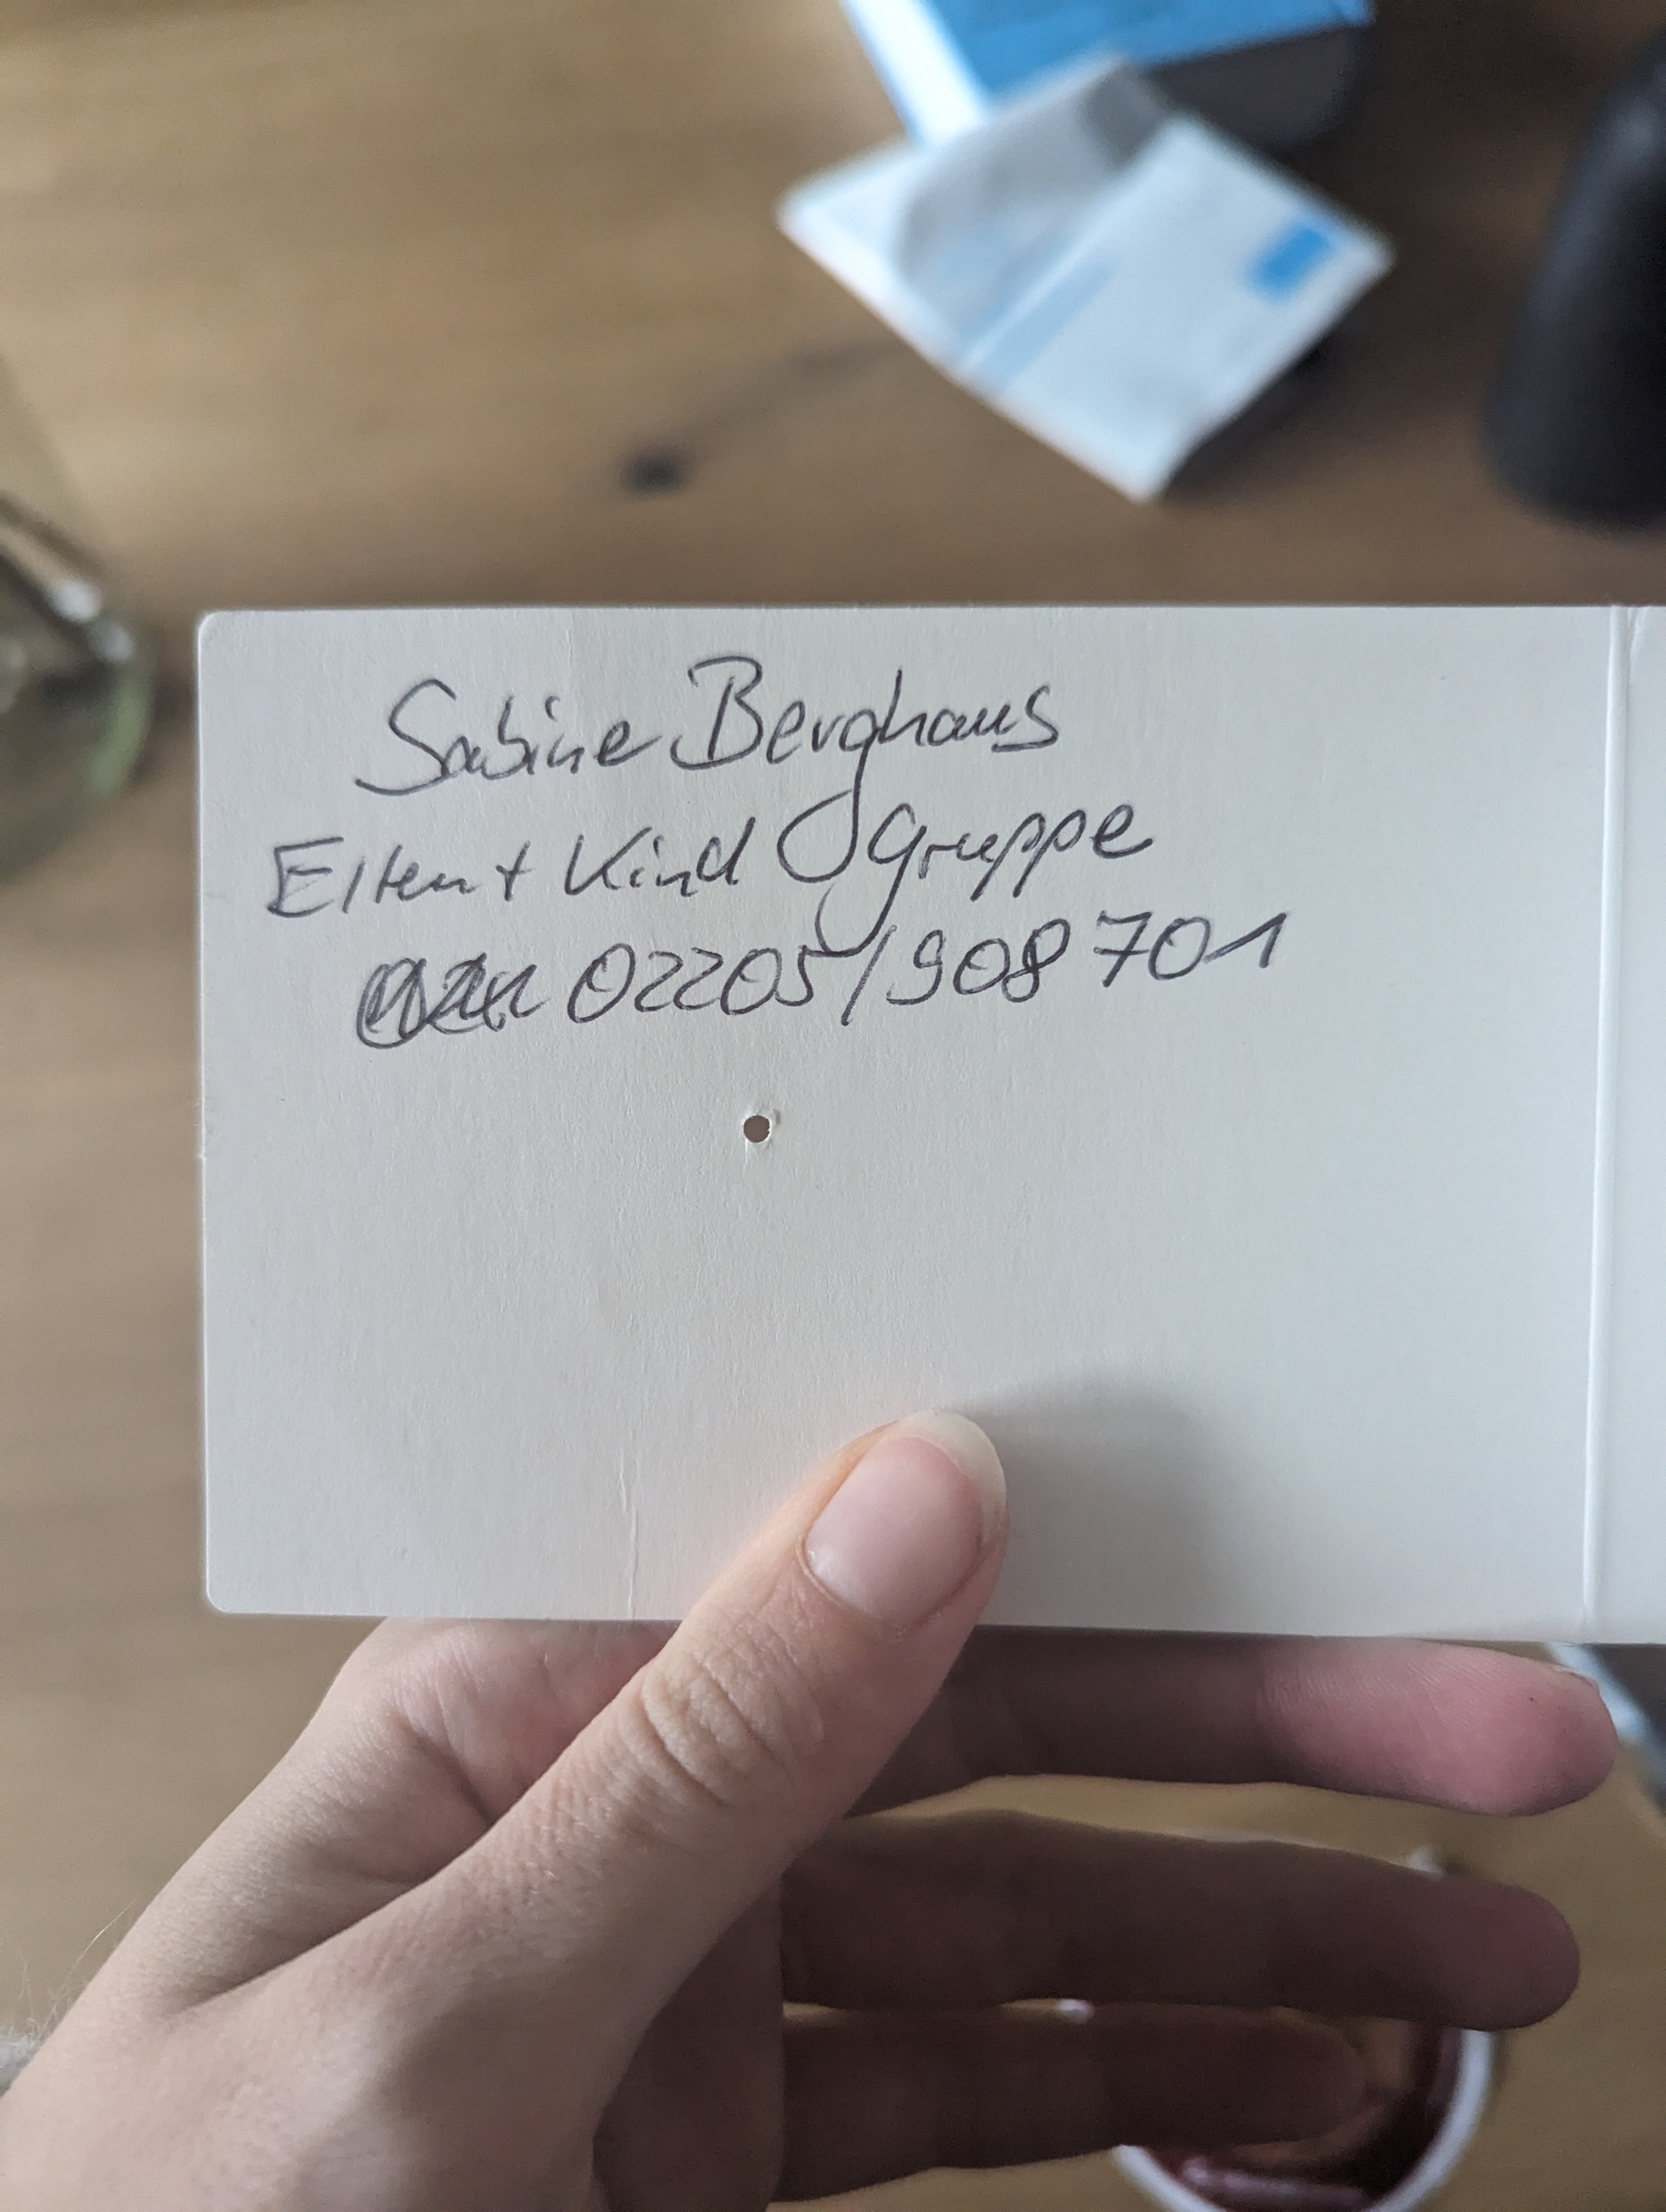 Sabine Berghaus
Eltern + Kind gruppe
02205/908701